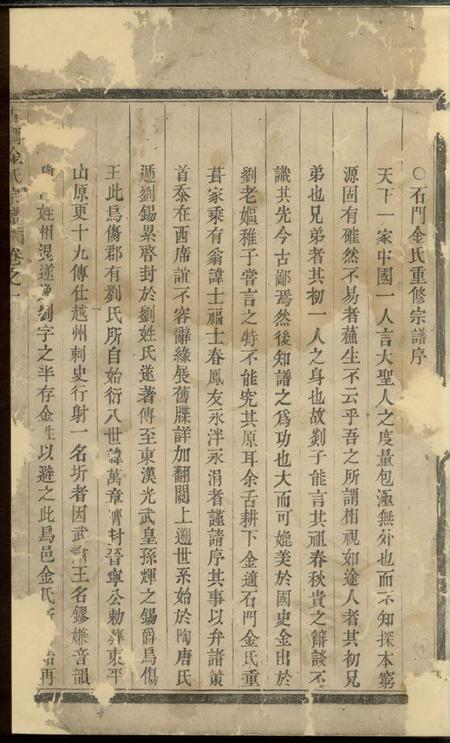 ○石門金氏重修宗譜序
天下一家中國一人言大聖人之度量包涵無外也而不知探本窮
源固有確然不易者蘓生不云乎吾之所謂相視如途人者其初兄
弟也兄弟者其初一人之身也故剡子能言其祖春秋貴之籍談不
識其先今古鄙焉然後知譜之爲功也大而可媲美於國史金出於
劉老嫗稚子嘗言之特不能究其原耳余舌耕下金適石門金氏重
葺家乘有翁諱士福士春鳳友永泮永涓者謹請序其事以弁諸策
首忝在西席誼不容辭緣展舊牒詳加翻閱上遡世系始於陶唐氏
遞劉錫累啓封於劉姓氏遂著傳至東漢光武皇孫輝之錫爵爲傷
王此爲傷郡有劉氏所自始衍八世諱萬章濟封晉寧公勅葬東平
山原更十九傳仕越州刺史行射一名圻者因武肅王名鏐嫌音韻
姓相混遂剖字之半存金生以避之此爲邑金氏 始再
金氏宗譜 卷之一